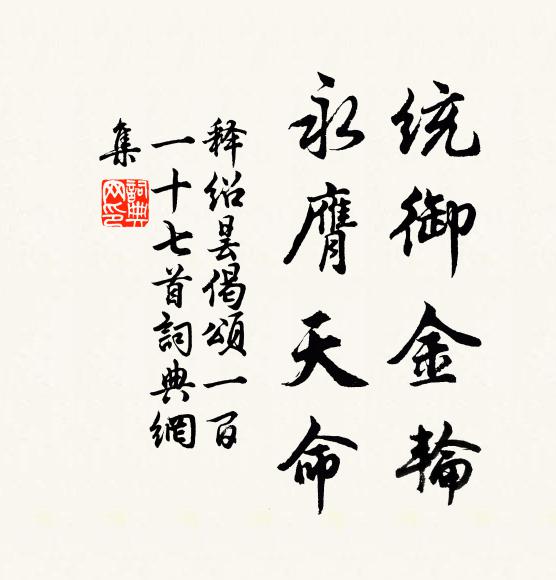 统御金輪
永膺天命
释绍昙偈頌一百
一十七首詞典網
集
詞典网印